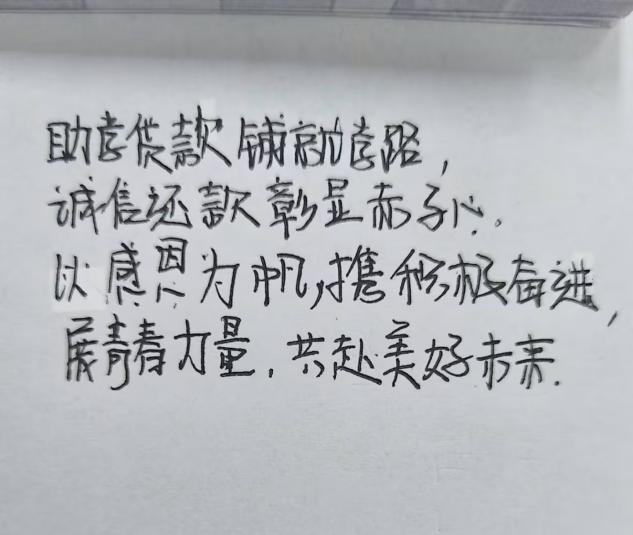 助学贷款铺就学路，
诚信还款彰显赤子心。
以感恩为帆，携积极奋进，
展青春力量，共赴美好未来.